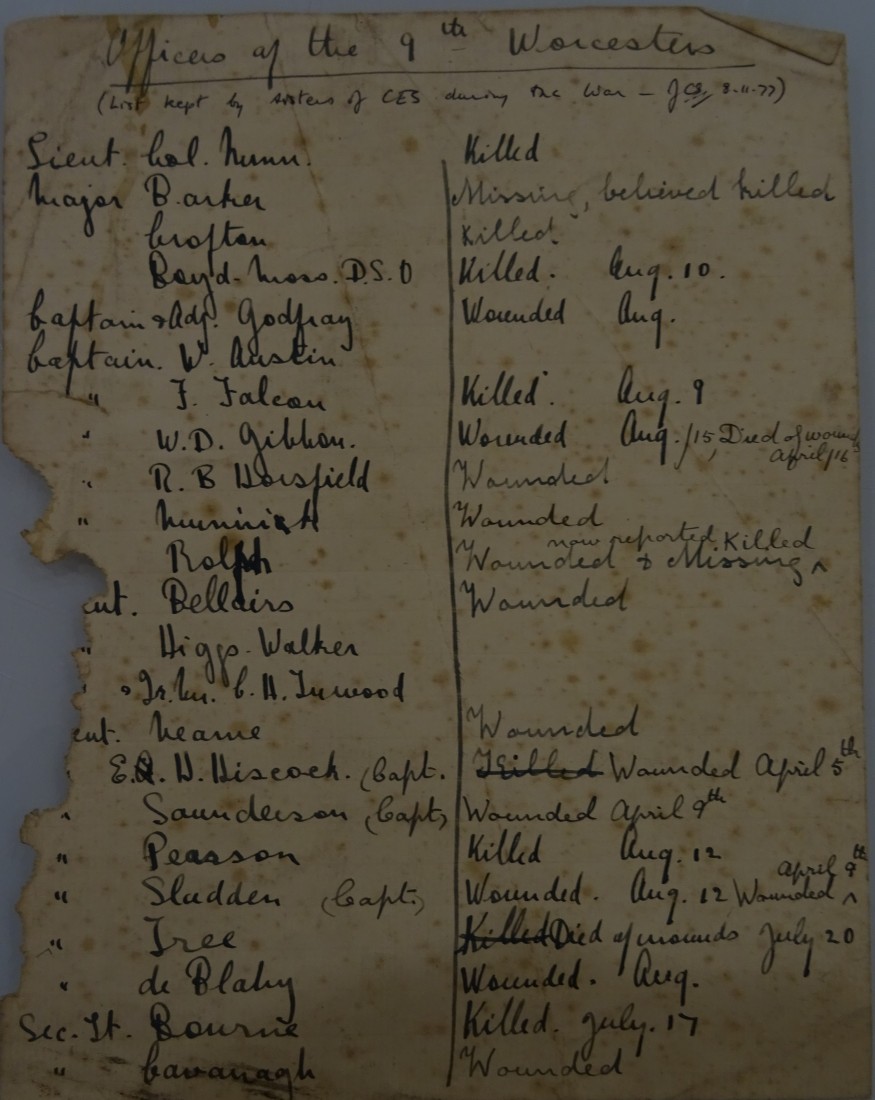 Officers of the 9th Worcesters
(List kept by sisters of CES during the War - JCS, 8.11.77)
Lieut. Col. Nunn. Killed
Major Barker Missing, believed killed
Crofton Killed.
Boyd-Moss. D.S.O Killed. Aug. 10.
Captain & Adj. Godfray Wounded Aug.
Captain. W. Austin
" F. Falcon Killed. Aug. 9
" W.D. Gibbon. Wounded Aug./15, Died of wounds April/16
" R. B Horsfield Wounded
" Wounded
Rolph Wounded & Missing now reported Killed
eut. Bellairs Wounded
" Higgs-Walker
" & Qr. Mr. C. H. Inwood
eut. Neame Wounded
E.A. H. Hiscock. (Capt. Killed Wounded April 5th
" Saunderson (Capt) Wounded April 9th
" Pearson Killed Aug. 12
" Sladden (Capt.) Wounded. Aug. 12 Wounded April 9th
" Tree Killed Died of wounds July 20
" de Blaby Wounded. Aug.
Sec. Lt. Bourne Killed. July. 17
" Cavanagh Wounded